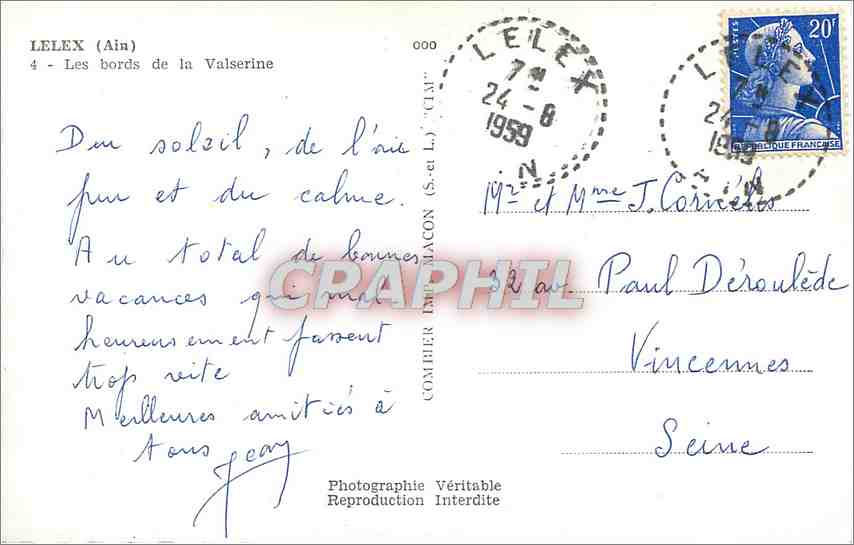 LELEX (Ain)
4 - Les bords de la Valserine
000
Du soleil, de l'air
pur et du calme.
Au total de bonnes
vacances qui mal-
heureusement passent
trop vite
Meilleures amitiés à
tous Jean
COMBIER IMP. MACON (S.-et L.) "CIM"
CPAPHIL
Photographie Véritable
Reproduction Interdite
LELEX
24 - 8
1959
AIN
LELEX
24 - 8
1959
AIN
20F
POSTES
REPUBLIQUE FRANCAISE
Mr et Mme J.
32 av. Paul Déroulède
Vincennes
Seine